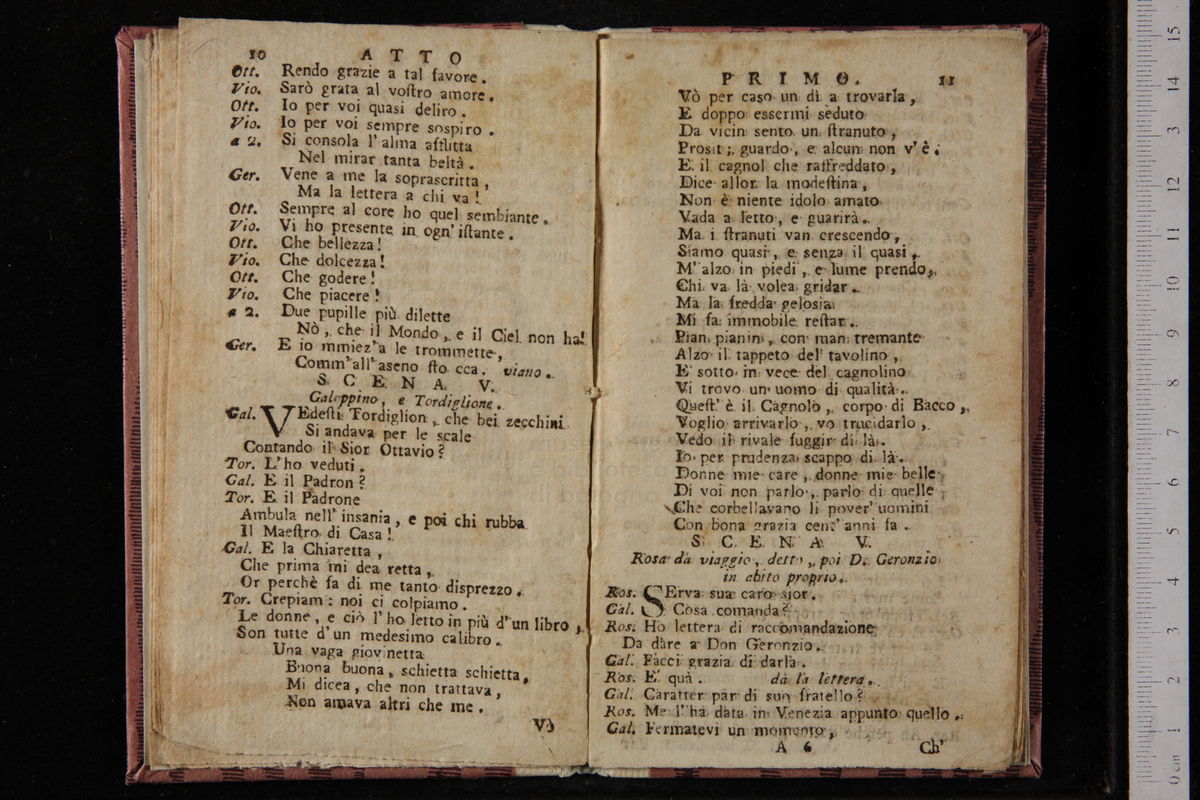 10 ATTO
Ott. Rendo grazie a tal favore.
Vio. Sarò grata al voſtro amore.
Ott. Io per voi quasi deliro.
Vio. Io per voi sempre sospiro.
a 2. Si consola l'alma afflitta
Nel mirar tanta beltà.
Ger. Vene a me la soprascritta,
Ma la lettera a chi va!
Ott. Sempre al core ho quel sembiante.
Vio. Vi ho presente in ogn'iſtante.
Ott. Che bellezza!
Vio. Che dolcezza!
Ott. Che godere!
Vio. Che piacere!
a 2. Due pupille più dilette
Nò, che il Mondo, e il Ciel non ha!
Ger. E io mmiez'a le trommette,
Comm'all'aseno ſto cca. viano.
SCENA V.
Galoppino, e Tordiglione.
Gal. VEdeſti Tordiglion, che bei zecchini
Si andava per le scale
Contando il Sior Ottavio?
Tor. L'ho veduti.
Gal. E il Padron?
Tor. E il Padrone
Ambula nell'insania, e poi chi rubba
Il Maeſtro di Casa!
Gal. E la Chiaretta,
Che prima mi dea retta,
Or perchè fa di me tanto disprezzo.
Tor. Crepiam: noi ci colpiamo.
Le donne, e ciò l'ho letto in più d'un libro,
Son tutte d'un medesimo calibro.
Una vaga giovinetta
Buona buona, schietta schietta,
Mi dicea, che non trattava,
Non amava altri che me.
Vò
PRIMO. 11
Vò per caso un dì a trovarla,
E doppo essermi seduto
Da vicin sento un ſtranuto,
Prosit; guardo, e alcun non v'è.
E il cagnol che raffreddato,
Dice allor la modeſtina,
Non è niente idolo amato
Vada a letto, e guarirà.
Ma i ſtranuti van crescendo,
Siamo quasi, e senza il quasi,
M'alzo in piedi, e lume prendo,
Chi va là volea gridar.
Ma la fredda gelosia
Mi fa immobile reſtar.
Pian pianin, con man tremante
Alzo il tappeto del tavolino,
E sotto in vece del cagnolino
Vi trovo un uomo di qualità.
Queſt'è il Cagnolo, corpo di Bacco,
Voglio arrivarlo, vo trucidarlo,
Vedo il rivale fuggir di là.
Io per prudenza scappo di là.
Donne mie care, donne mie belle
Di voi non parlo, parlo di quelle
Che corbellavano li pover'uomini
Con bona grazia cent'anni fa.
SCENA V.
Rosa da viaggio, detto, poi D. Geronzio
in abito proprio.
Ros. SErva sua caro sior.
Gal. Cosa comanda?
Ros. Ho lettera di raccomandazione
Da dare a Don Geronzio.
Gal. Facci grazia di darla.
Ros. E quà. dà la lettera.
Gal. Caratter par di suo fratello?
Ros. Me l'ha data in Venezia appunto quello.
Gal. Fermatevi un momento,
A 6 Ch'